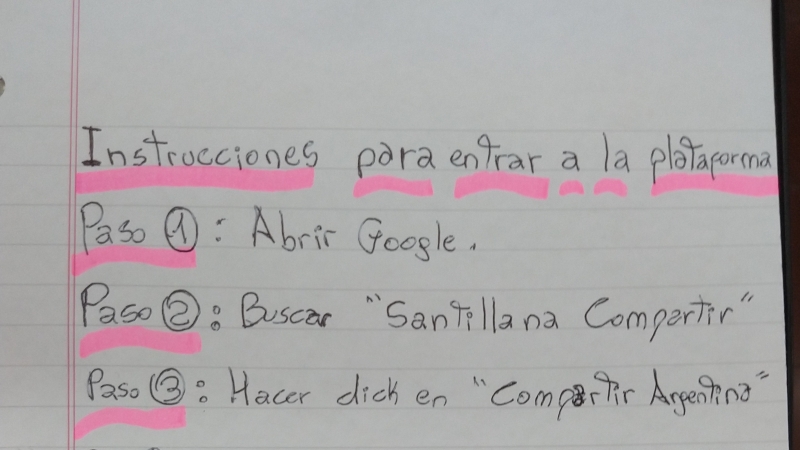 Instrucciones para entrar a la plataforma
Paso ①: Abrir Google.
Paso ②: Buscar "Santillana Compartir"
Paso ③: Hacer click en "Compartir Argentina"